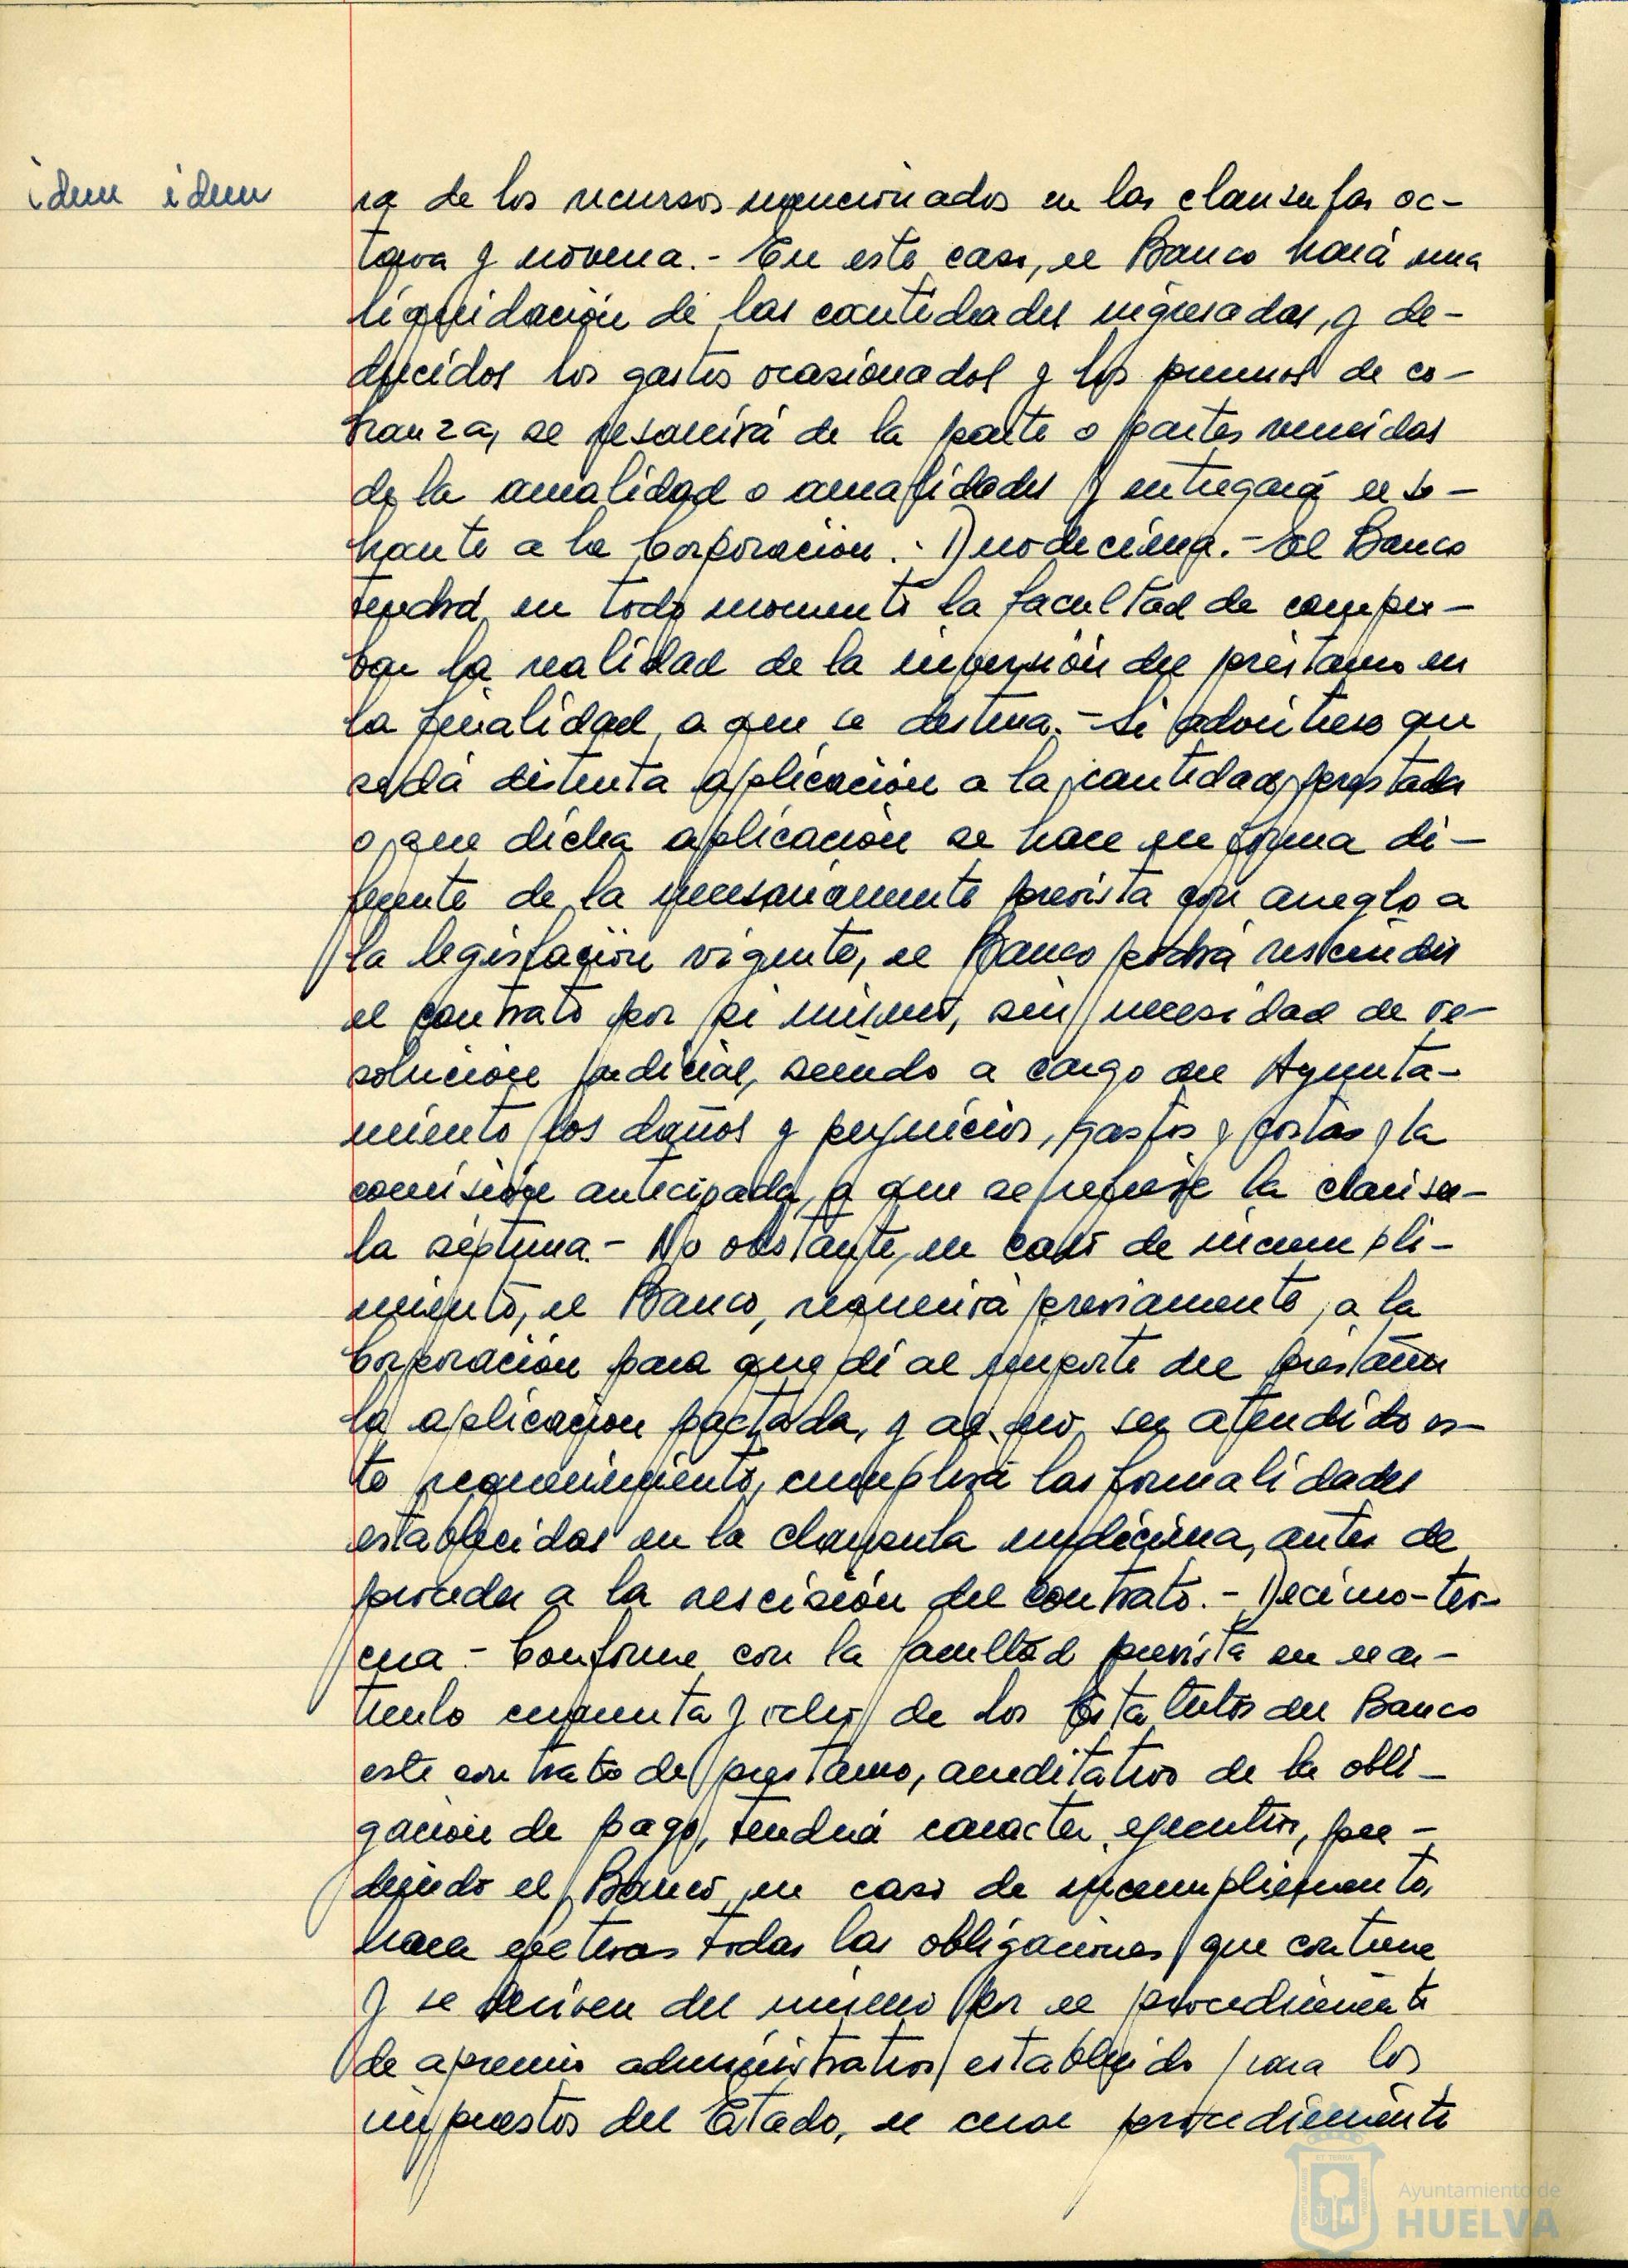 idem idem
ra de los recursos mencionados en las clausulas oc-
tava y novena.- En este caso, el Banco hará una
liquidación de las cantidades ingresadas, y de-
ducidos los gastos ocasionados y los premios de co-
branza, se resarcirá de la parte o partes vencidas
de la anualidad o anualidades y entregará el so-
brante a la Corporación.- Duodecima.- El Banco
tendrá en todo momento la facultad de compro-
bar la realidad de la inversión del préstamo en
la finalidad a que se destina.- Si advirtiese que
se dá distinta aplicación a la cantidad prestada
o que dicha aplicación se hace en forma di-
ferente de la necesariamente prevista con arreglo a
la legislación vigente, el Banco podrá rescindir
el contrato por si mismo, sin necesidad de re-
solución judicial, siendo a cargo del Ayunta-
miento los daños y perjuicios, gastos y costas y la
comisión anticipada, a que se refiere la clausu-
la séptima.- No obstante, en caso de incumpli-
miento, el Banco, requerirá previamente, a la
Corporación para que dé al importe del préstamo
la aplicación pactada, y al no ser atendido es-
te requerimiento, cumplirá las formalidades
establecidas en la clausula undécima, antes de
proceder a la rescisión del contrato.- Decimo-ter-
cera.- Conforme con la facultad prevista en el ar-
tículo cincuenta y ocho de los Estatutos del Banco
este contrato de préstamo, acreditativo de la obli-
gación de pago, tendrá caracter ejecutivo, pu-
diendo el Banco, en caso de incumplimiento,
hacer efectivas todas las obligaciones que contiene
y se deriven del mismo por el procedimiento
de apremio administrativo establecido para los
impuestos del Estado, el cual procedimiento
Ayuntamiento de
HUELVA